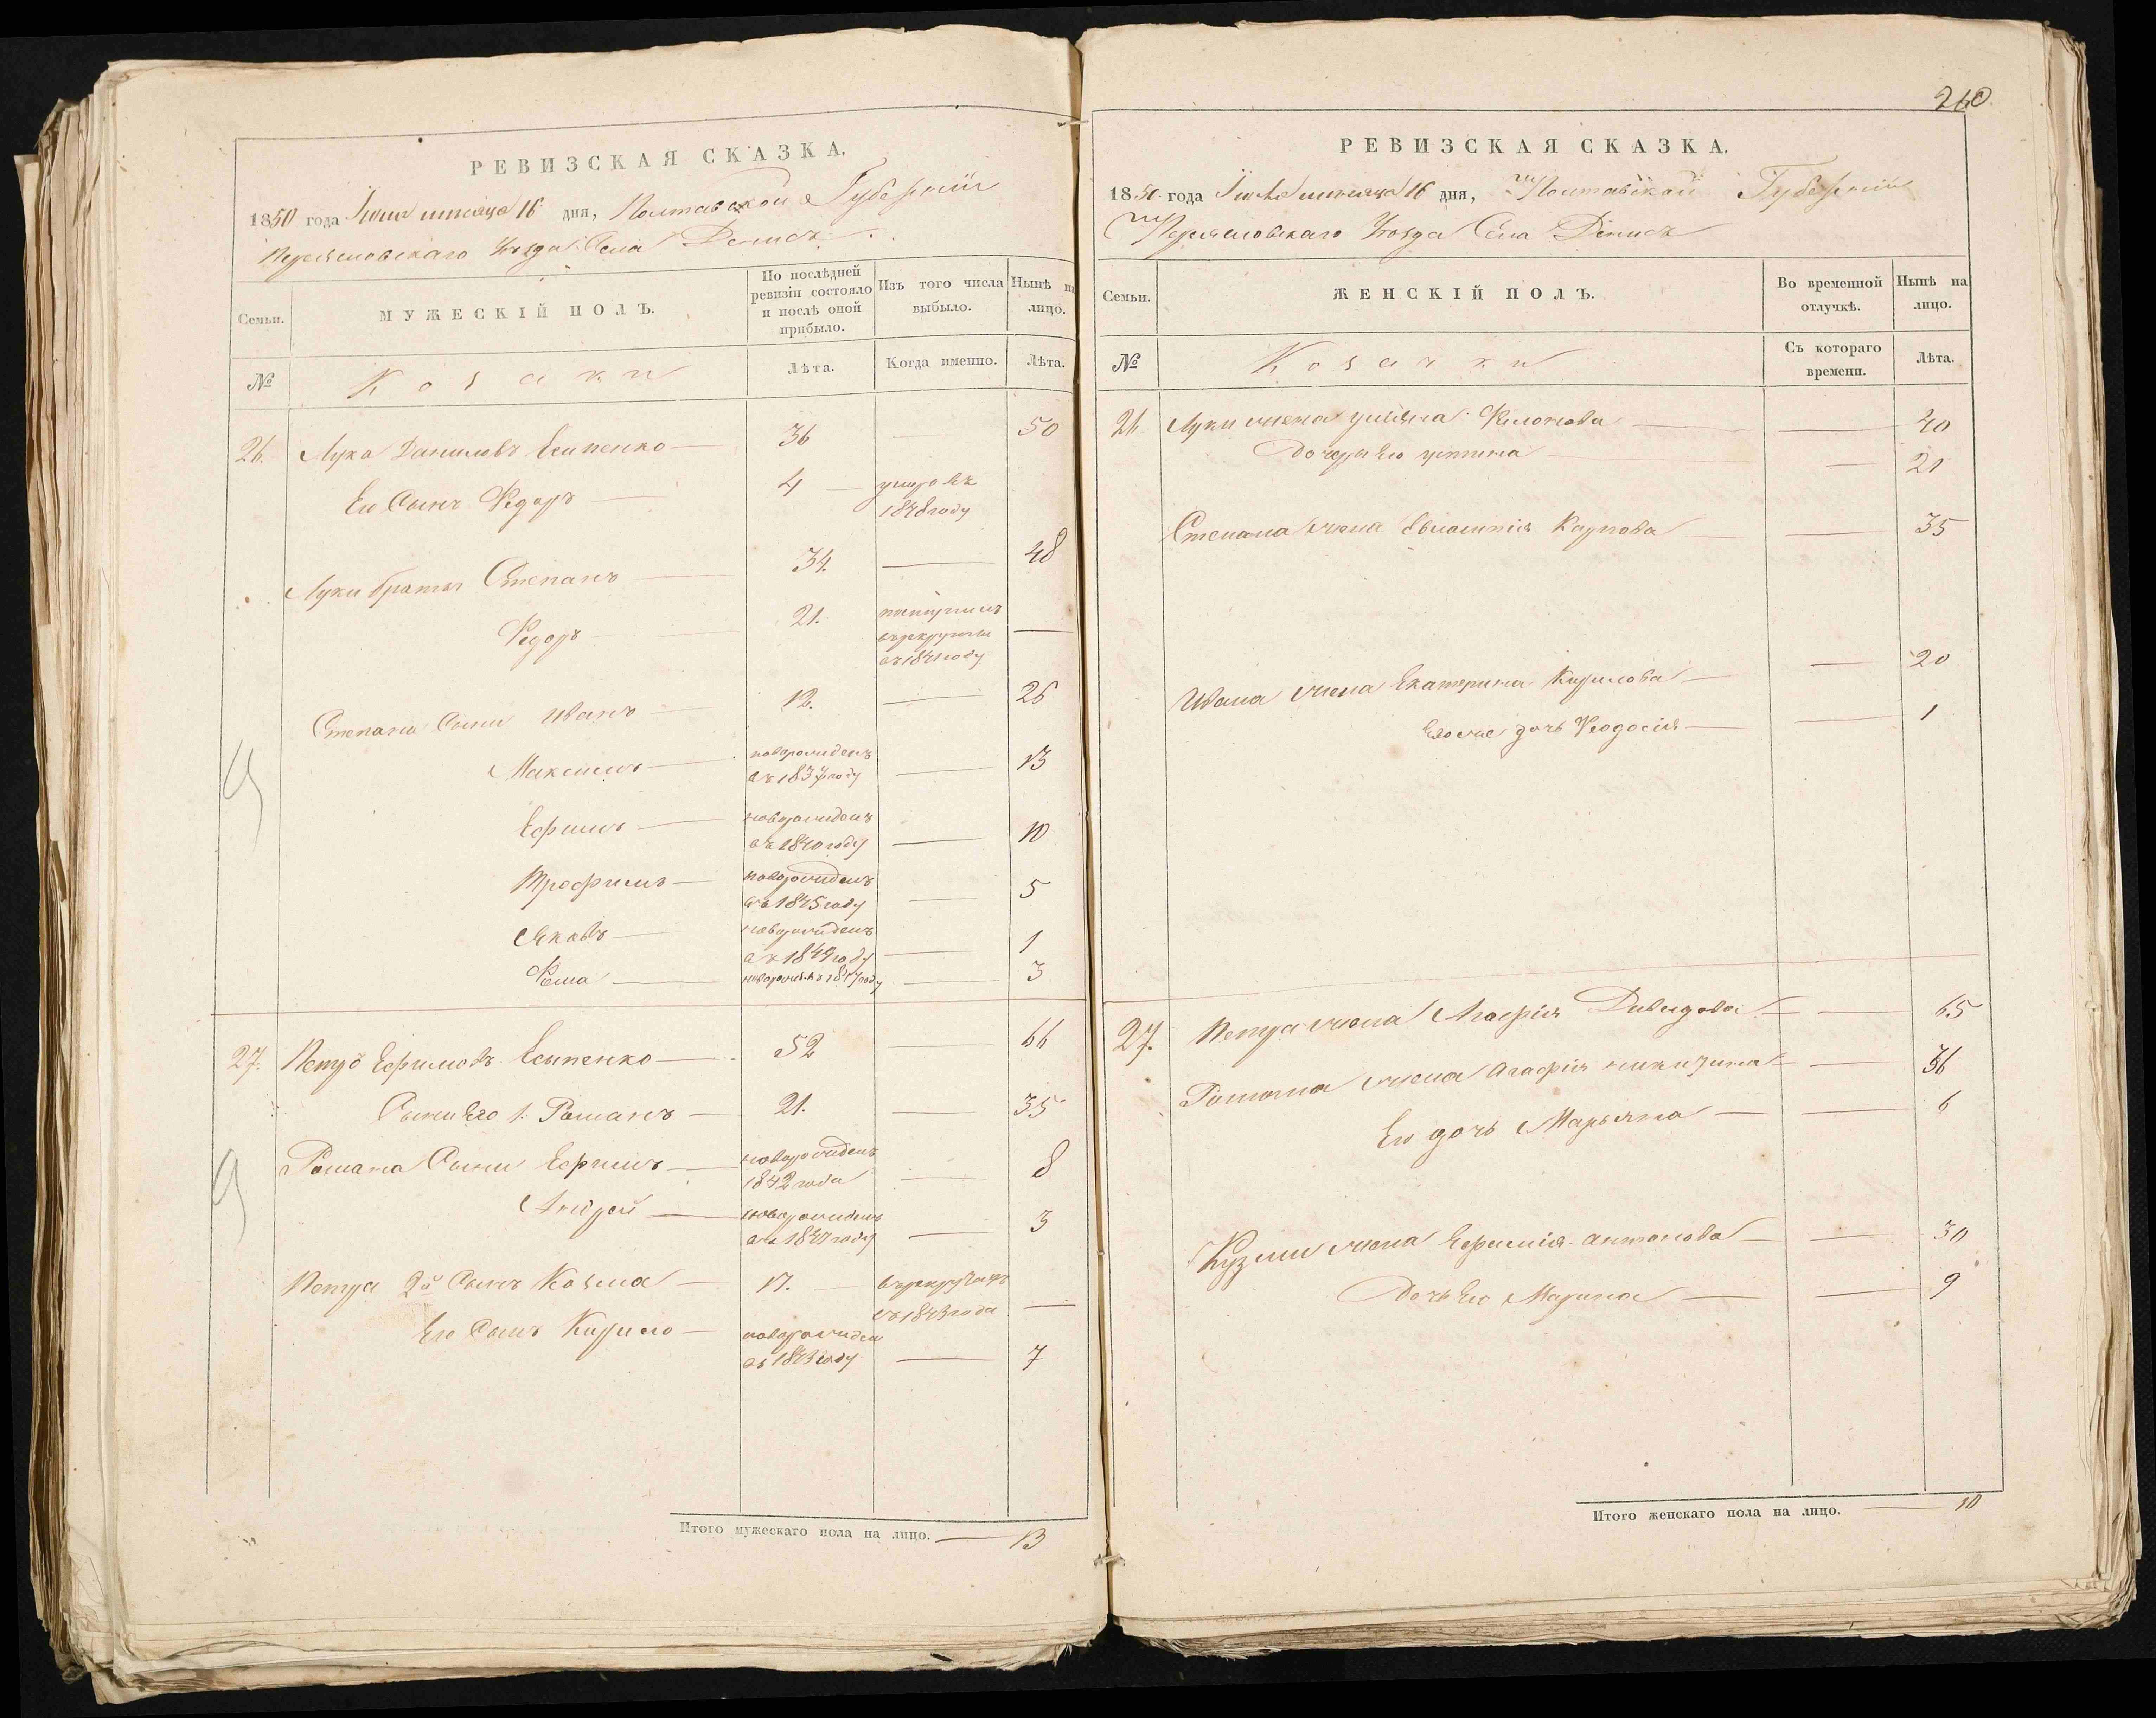 РЕВИЗСКАЯ СКАЗКА.
1850 года Іюня мѣсяца 16 дня, Полтавской Губерніи
Переяславскаго Уѣзда Села Денисъ
Семьи.
МУЖЕСКІЙ ПОЛЪ.
По послѣдней ревизіи состояло и послѣ оной прибыло.
Изъ того числа выбыло.
Нынѣ на лицо.
№
Козаки
Лѣта.
Когда именно.
Лѣта.
26. Лука Даниловъ Есипенко 36 50
Его Сынъ Федоръ 4 умеръ въ
1848 году
Луки братья Степанъ 34. 48
Федоръ 21. поступилъ
въ рекруты
въ 1841 году
Степана Сыны Иванъ 12. 26
Максимъ новорожденъ
въ 1837 году 13
Ефимъ новорожденъ
въ 1840 году 10
Трофимъ новорожденъ
въ 1845 году 5
Яковъ новорожденъ
въ 1849 году 1
Фома 1847 году 3
27. Петръ Ефимовъ Есипенко 52 66
Сыны Его 1. Романъ 21. 35
Романа Сыны Ефимъ новорожденъ
1842 года 8
Андрей новорожденъ
въ 1847 году 3
Петра 2й Сынъ Козма 17. въ рекрутахъ
съ 1843 года
Его Сынъ Кирило новорожден
въ 1843 году 7
Итого мужескаго пола на лицо. 13
260
РЕВИЗСКАЯ СКАЗКА.
1850 года Іюня мѣсяца 16 дня, Полтавской Губерніи
Переяславскаго Уѣзда Села Денисъ
Семьи.
ЖЕНСКІЙ ПОЛЪ.
Во временной отлучкѣ.
Нынѣ на лицо.
№
Козачки
Съ котораго времени.
Лѣта.
26 Луки жена Ульяна Филонова 40
Дочерь Его устина 21
Степана жена Евгенія Карпова 35
Ивана жена Екатерина Кирилова 20
Его же дочь Феодосія 1
27. Петра жена Агафія Давидова 65
Романа жена Агафія никитина 36
Его дочь Марьяна 6
Кузми жена Ефимія антонова 30
Дочь Его Марина 9
Итого женскаго пола на лицо. 10